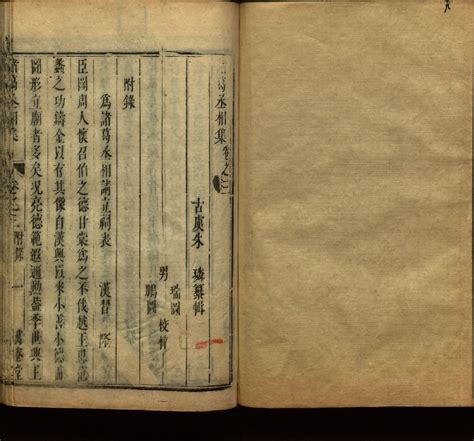 諸葛丞相集卷之三
古虞朱 璘纂輯
男 瑞圖
鵬圖 校
附錄
為諸葛丞相請立祠表 漢習隆
臣聞周人懷召伯之德甘棠為之不伐越王思范
蠡之功鑄金以存其像自漢興以來小善小德而
圖形立廟者多矣況亮德範遐邇勳蓋季世興王
諸葛丞相集 卷之三 附錄 一 萬卷堂